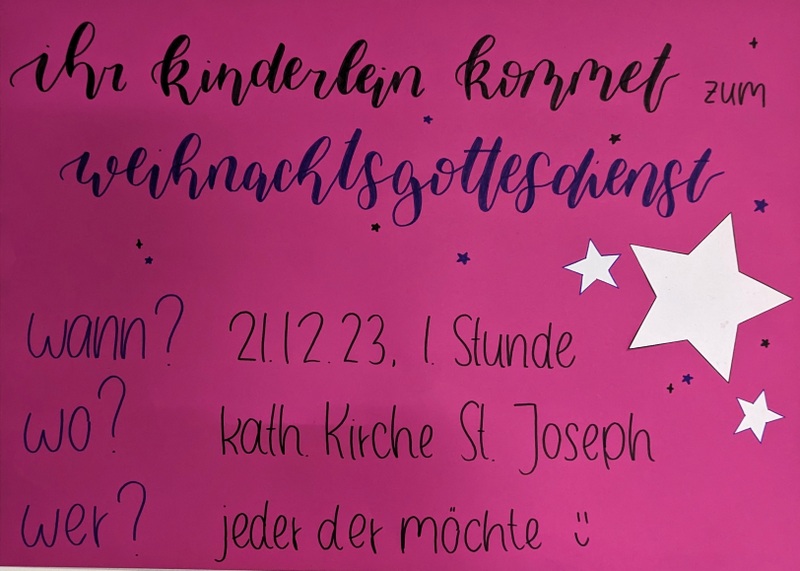 ihr kinderlein kommet zum
weihnachtsgottesdienst
wann? 21.12.23, 1. Stunde
wo? kath. Kirche St. Joseph
wer? jeder der möchte :)